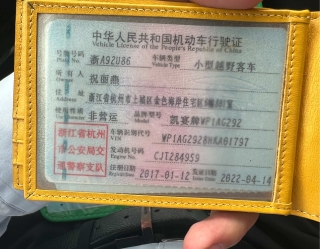 中华人民共和国机动车行驶证
Vehicle License of the People's Republic of China
号牌号码 浙A9Z086 车辆类型 小型越野客车
Plate No. Vehicle Type
所有人 祝丽燕
Owner
住址 浙江省杭州市上城区金色海岸住宅区
Address
使用性质 非营运 品牌型号 凯宴牌WP1AG292
Use Character Model
浙江省杭州
市公安局交
通警察支队
车辆识别代号
VIN
发动机号码 CJT284959
Engine No.
注册日期 2017-01-12 发证日期 2022-04-14
Register Date Issue Date